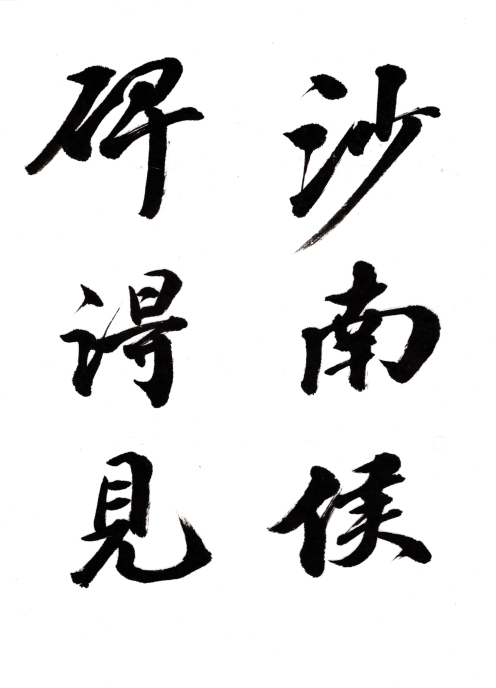 沙南侯
碑得見